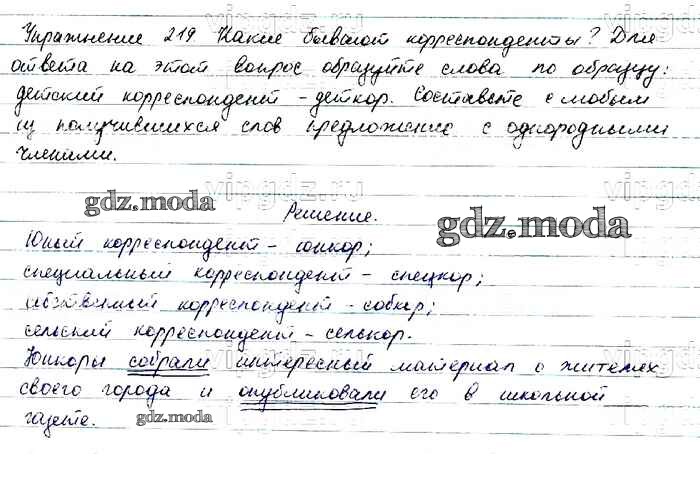 Упражнение 219 Какие бывают корреспонденты? Для
ответа на этот вопрос образуйте слова по образцу:
детский корреспондент - деткор. Составьте с любым
из получившихся слов предложение с однородными
членами.
vipgdz.ru
gdz.moda
Решение.
gdz.moda
Юный корреспондент - юнкор;
специальный корреспондент - спецкор;
собственный корреспондент - собкор;
сельский корреспондент - селькор.
Юнкоры собрали интересный материал о жителях
своего города и опубликовали его в школьной
газете.
gdz.moda